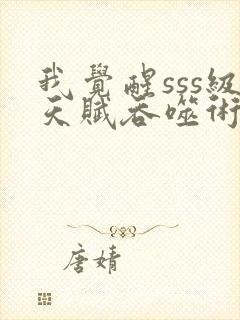 我覺醒sss級
天賦吞噬術
唐婧